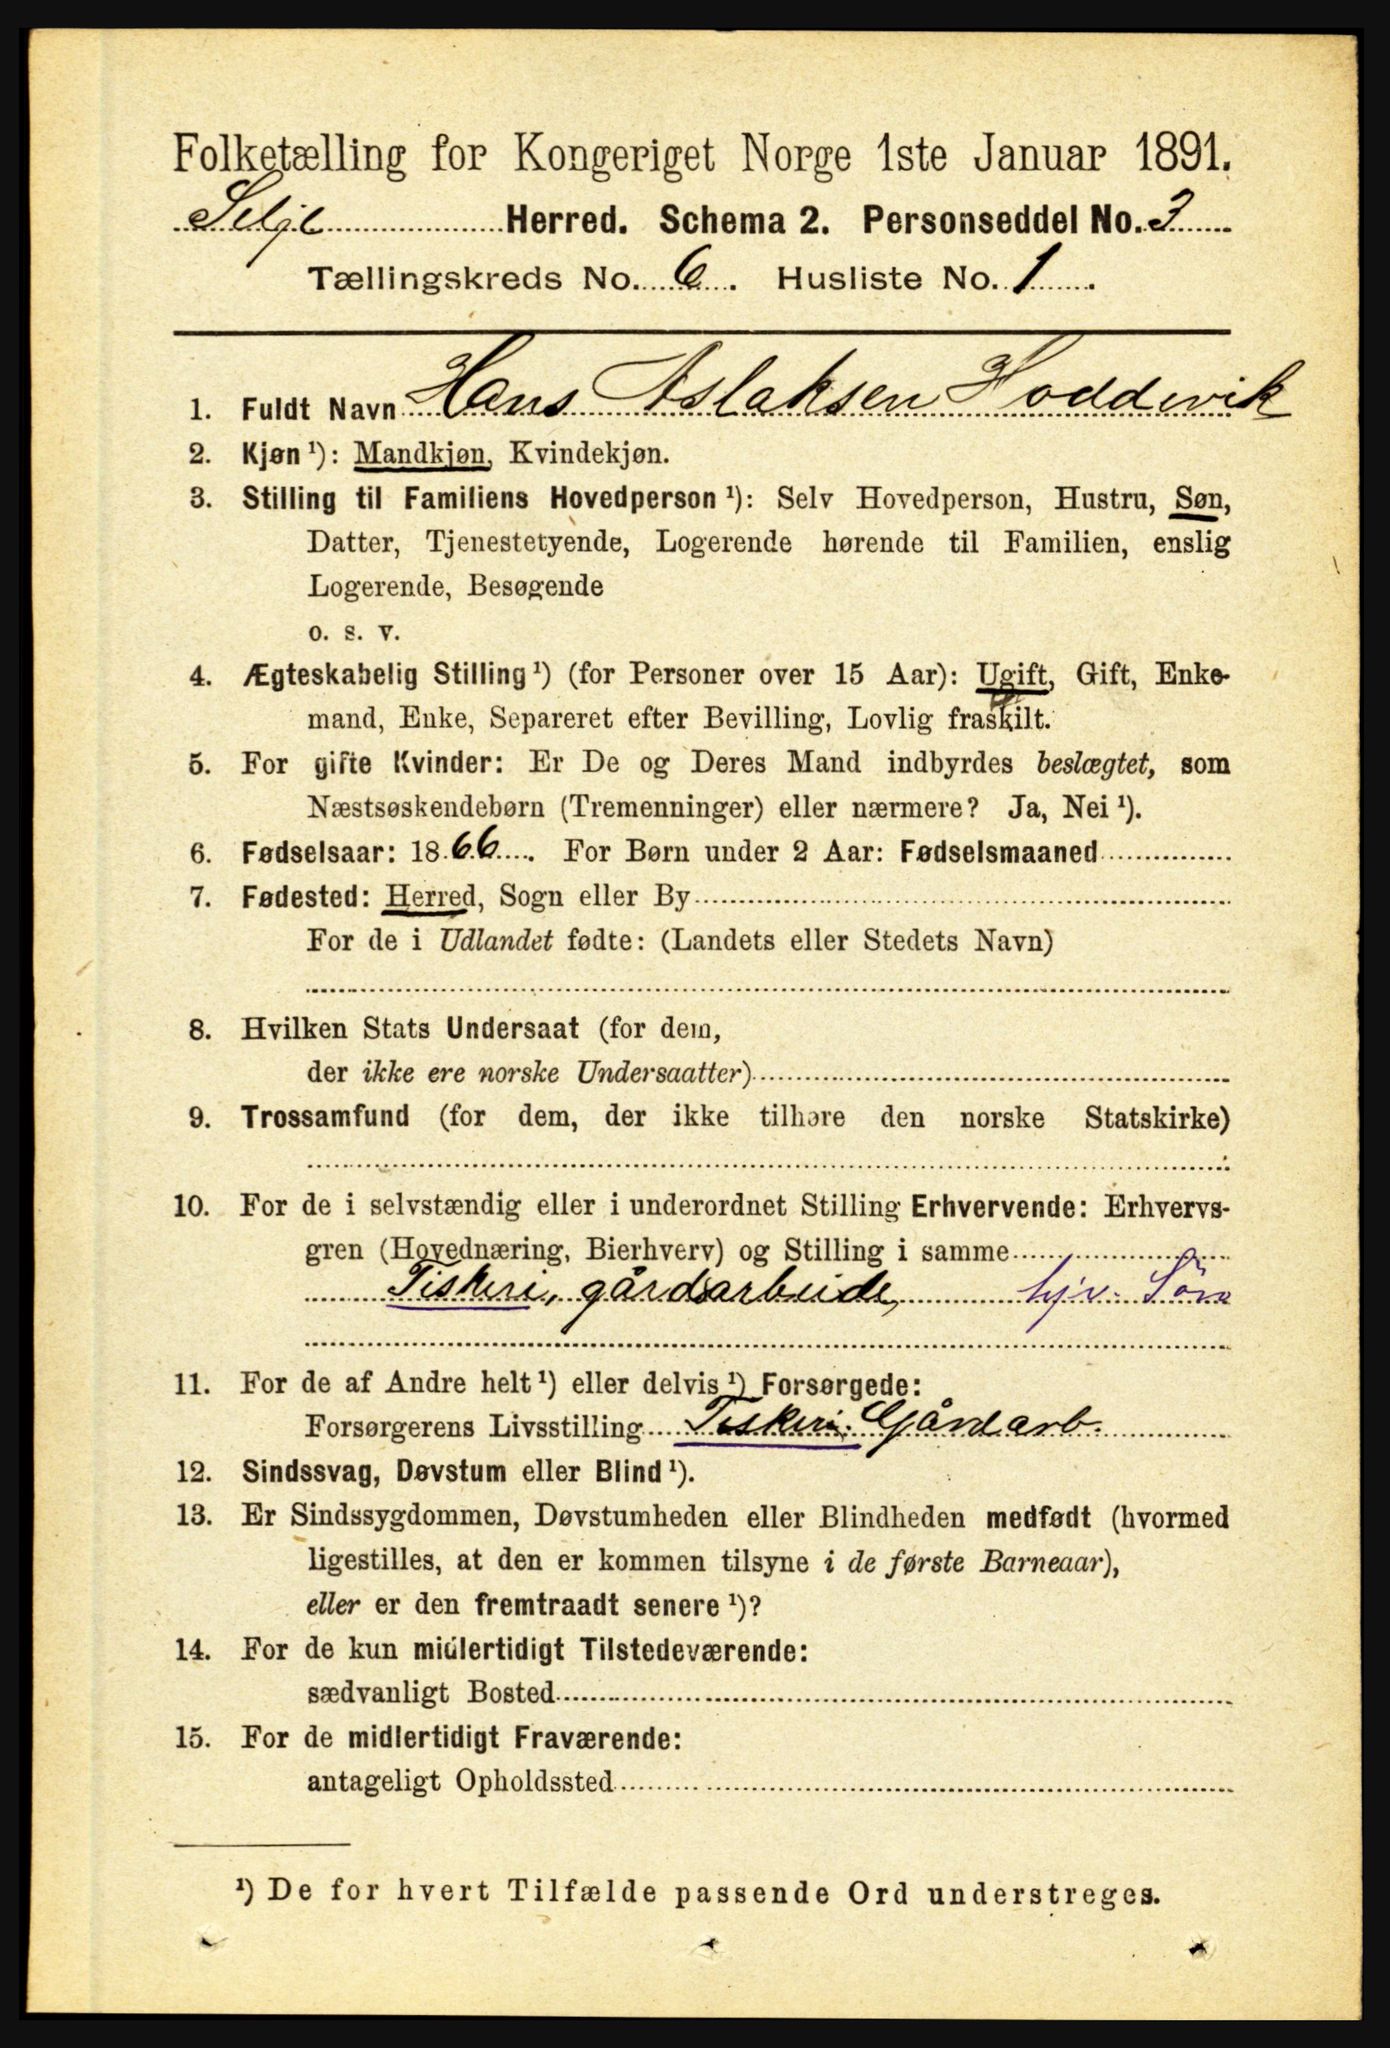 Folketælling for Kongeriget Norge 1ste Januar 1891.
Selje Herred. Schema 2. Personseddel No. 3
Tællingskreds No. 6. Husliste No. 1.
1. Fuldt Navn Hans Aslaksen Hoddevik
2. Kjøn ¹): Mandkjøn, Kvindekjøn.
3. Stilling til Familiens Hovedperson ¹): Selv Hovedperson, Hustru, Søn,
Datter, Tjenestetyende, Logerende hørende til Familien, enslig
Logerende, Besøgende
o. s. v.
4. Ægteskabelig Stilling ¹) (for Personer over 15 Aar): Ugift, Gift, Enke-
mand, Enke, Separeret efter Bevilling, Lovlig fraskilt.
5. For gifte Kvinder: Er De og Deres Mand indbyrdes beslægtet, som
Næstsøskendebørn (Tremenninger) eller nærmere? Ja, Nei ¹).
6. Fødselsaar: 1866. For Børn under 2 Aar: Fødselsmaaned
7. Fødested: Herred, Sogn eller By
For de i Udlandet fødte: (Landets eller Stedets Navn)
8. Hvilken Stats Undersaat (for dem,
der ikke ere norske Undersaatter)
9. Trossamfund (for dem, der ikke tilhøre den norske Statskirke)
10. For de i selvstændig eller i underordnet Stilling Erhvervende: Erhvervs-
gren (Hovednæring, Bierhverv) og Stilling i samme
Fiskeri, gårdsarbeide, hjv. Søn
11. For de af Andre helt ¹) eller delvis ¹) Forsørgede:
Forsørgerens Livsstilling Fiskeri, Gårdarb.
12. Sindssvag, Døvstum eller Blind ¹).
13. Er Sindssygdommen, Døvstumheden eller Blindheden medfødt (hvormed
ligestilles, at den er kommen tilsyne i de første Barneaar),
eller er den fremtraadt senere ¹)?
14. For de kun midlertidigt Tilstedeværende:
sædvanligt Bosted
15. For de midlertidigt Fraværende:
antageligt Opholdssted
¹) De for hvert Tilfælde passende Ord understreges.